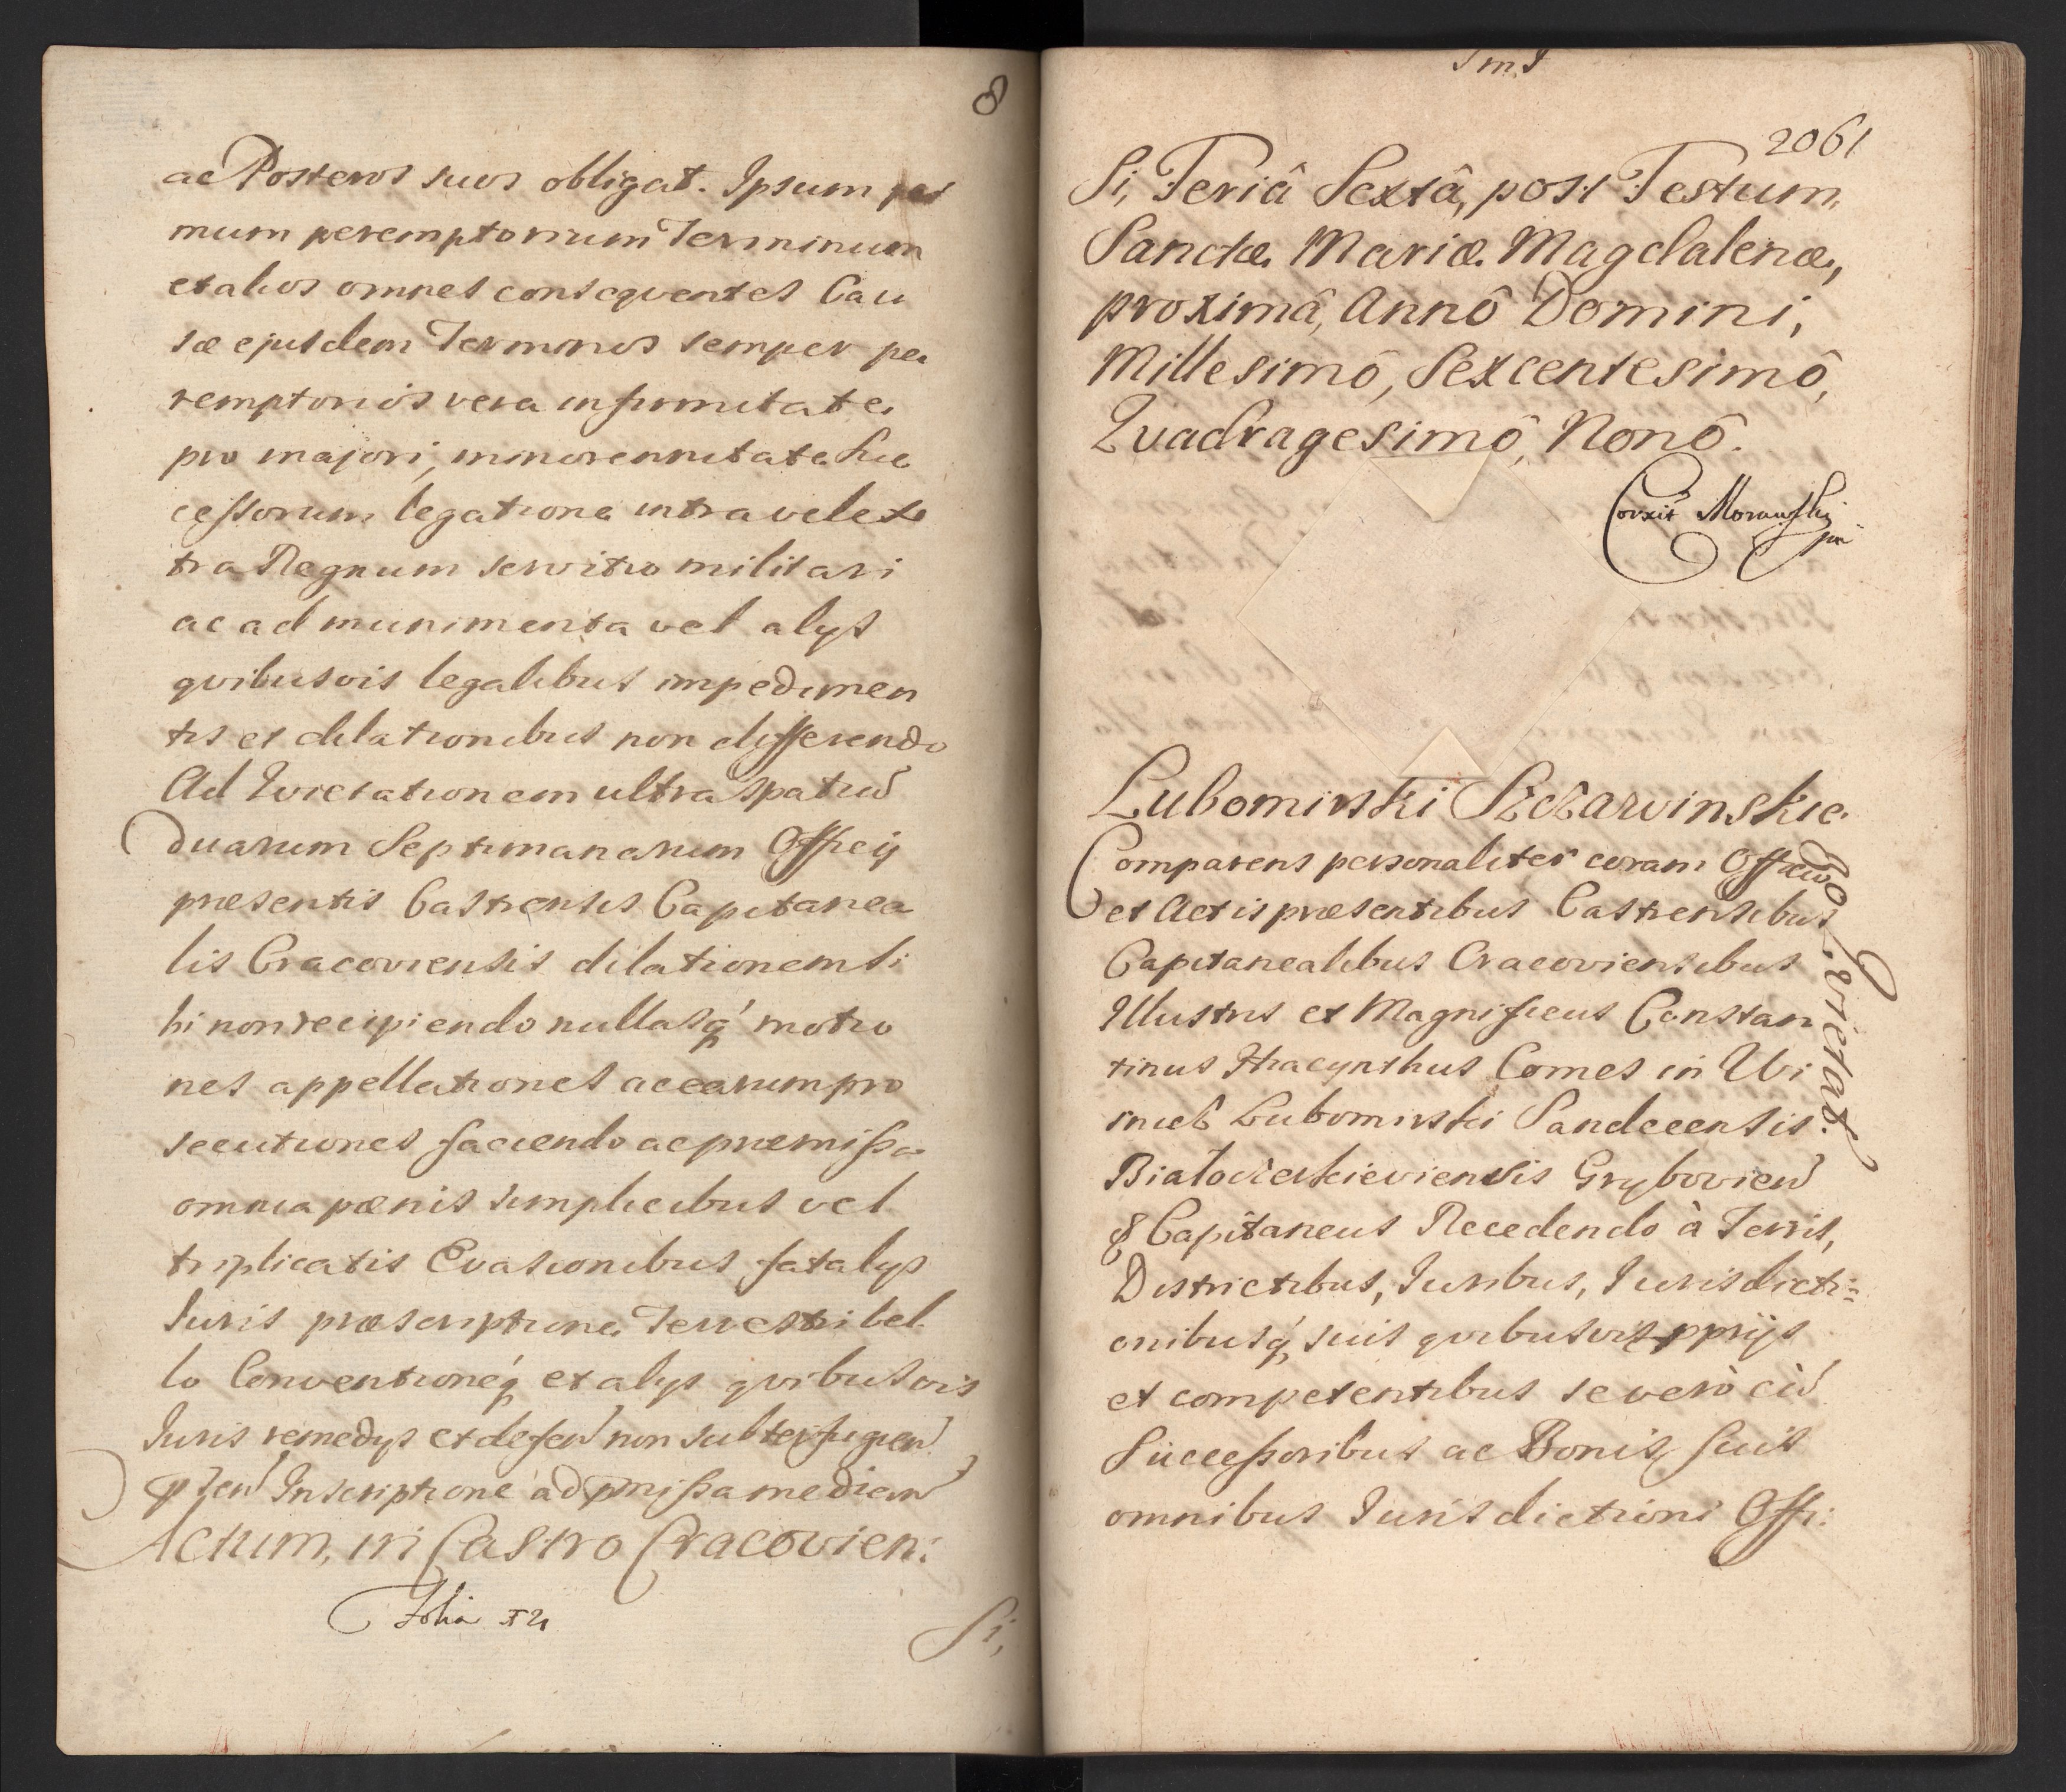 8
ac Posteros suos obligat. Ipsum pri
mum peremptorium Terminum
et alios omnes consequentes Cau
sæ ejusdem Terminos semper pe
remptorios vera infirmitate
pro majori, minorennitate Suc
cessorum legatione intra vel ex
tra Regnum servitio militari
ac ad munimenta vel alys
qvibusvis legalibus impedimen
tis et dilationibus non differendo
Ad Qvietationem ultra spatiu
duarum Septimanarum Officij
præsentis Castrensis Capitanea
lis Cracoviensis dilationem si
bi non recipiendo nullasq́ motio
nes appellationes ac earum pro
secutiones faciendo ac præmissa
omnia pænis simplicibus vel
triplicatis Evasionibus fatalys
Iuris præscriptione Terrestri bel
lo Conventioneq́ et alys qvibusvis
Iuris remedys et defen non subterfugien
psen Inscriptione ad pmissa median
Actum, in Castro Cracovien:
Folia
Si,
2061
Si, Feriâ Sextâ, post Festum,
Sanctæ Mariæ Magdalenæ,
proximâ, Annô Domini,
Millesimô, Sexcentesimô,
Qvadragesimô, Nonô.
Corxit Morawski
mp
Lubomirski Szczawinskie
Comparens personaliter coram Officio
et Actis præsentibus Castrensibus
Capitanealibus Cracoviensibus
Illustris et Magnificus Constan
tinus Hyacynthus Comes in Wi
snicz Lubomirski Sandecensis
Białocerkieviensis Grybovien
& Capitaneus Recedendo à Terris,
Districtibus, Iuribus, Iurisdicti:
onibusq́ suis qvibusvis pprijs
et competentibus se verò cu
Successoribus ac Bonis suis
omnibus Iurisdictioni Offi:
Qvietat